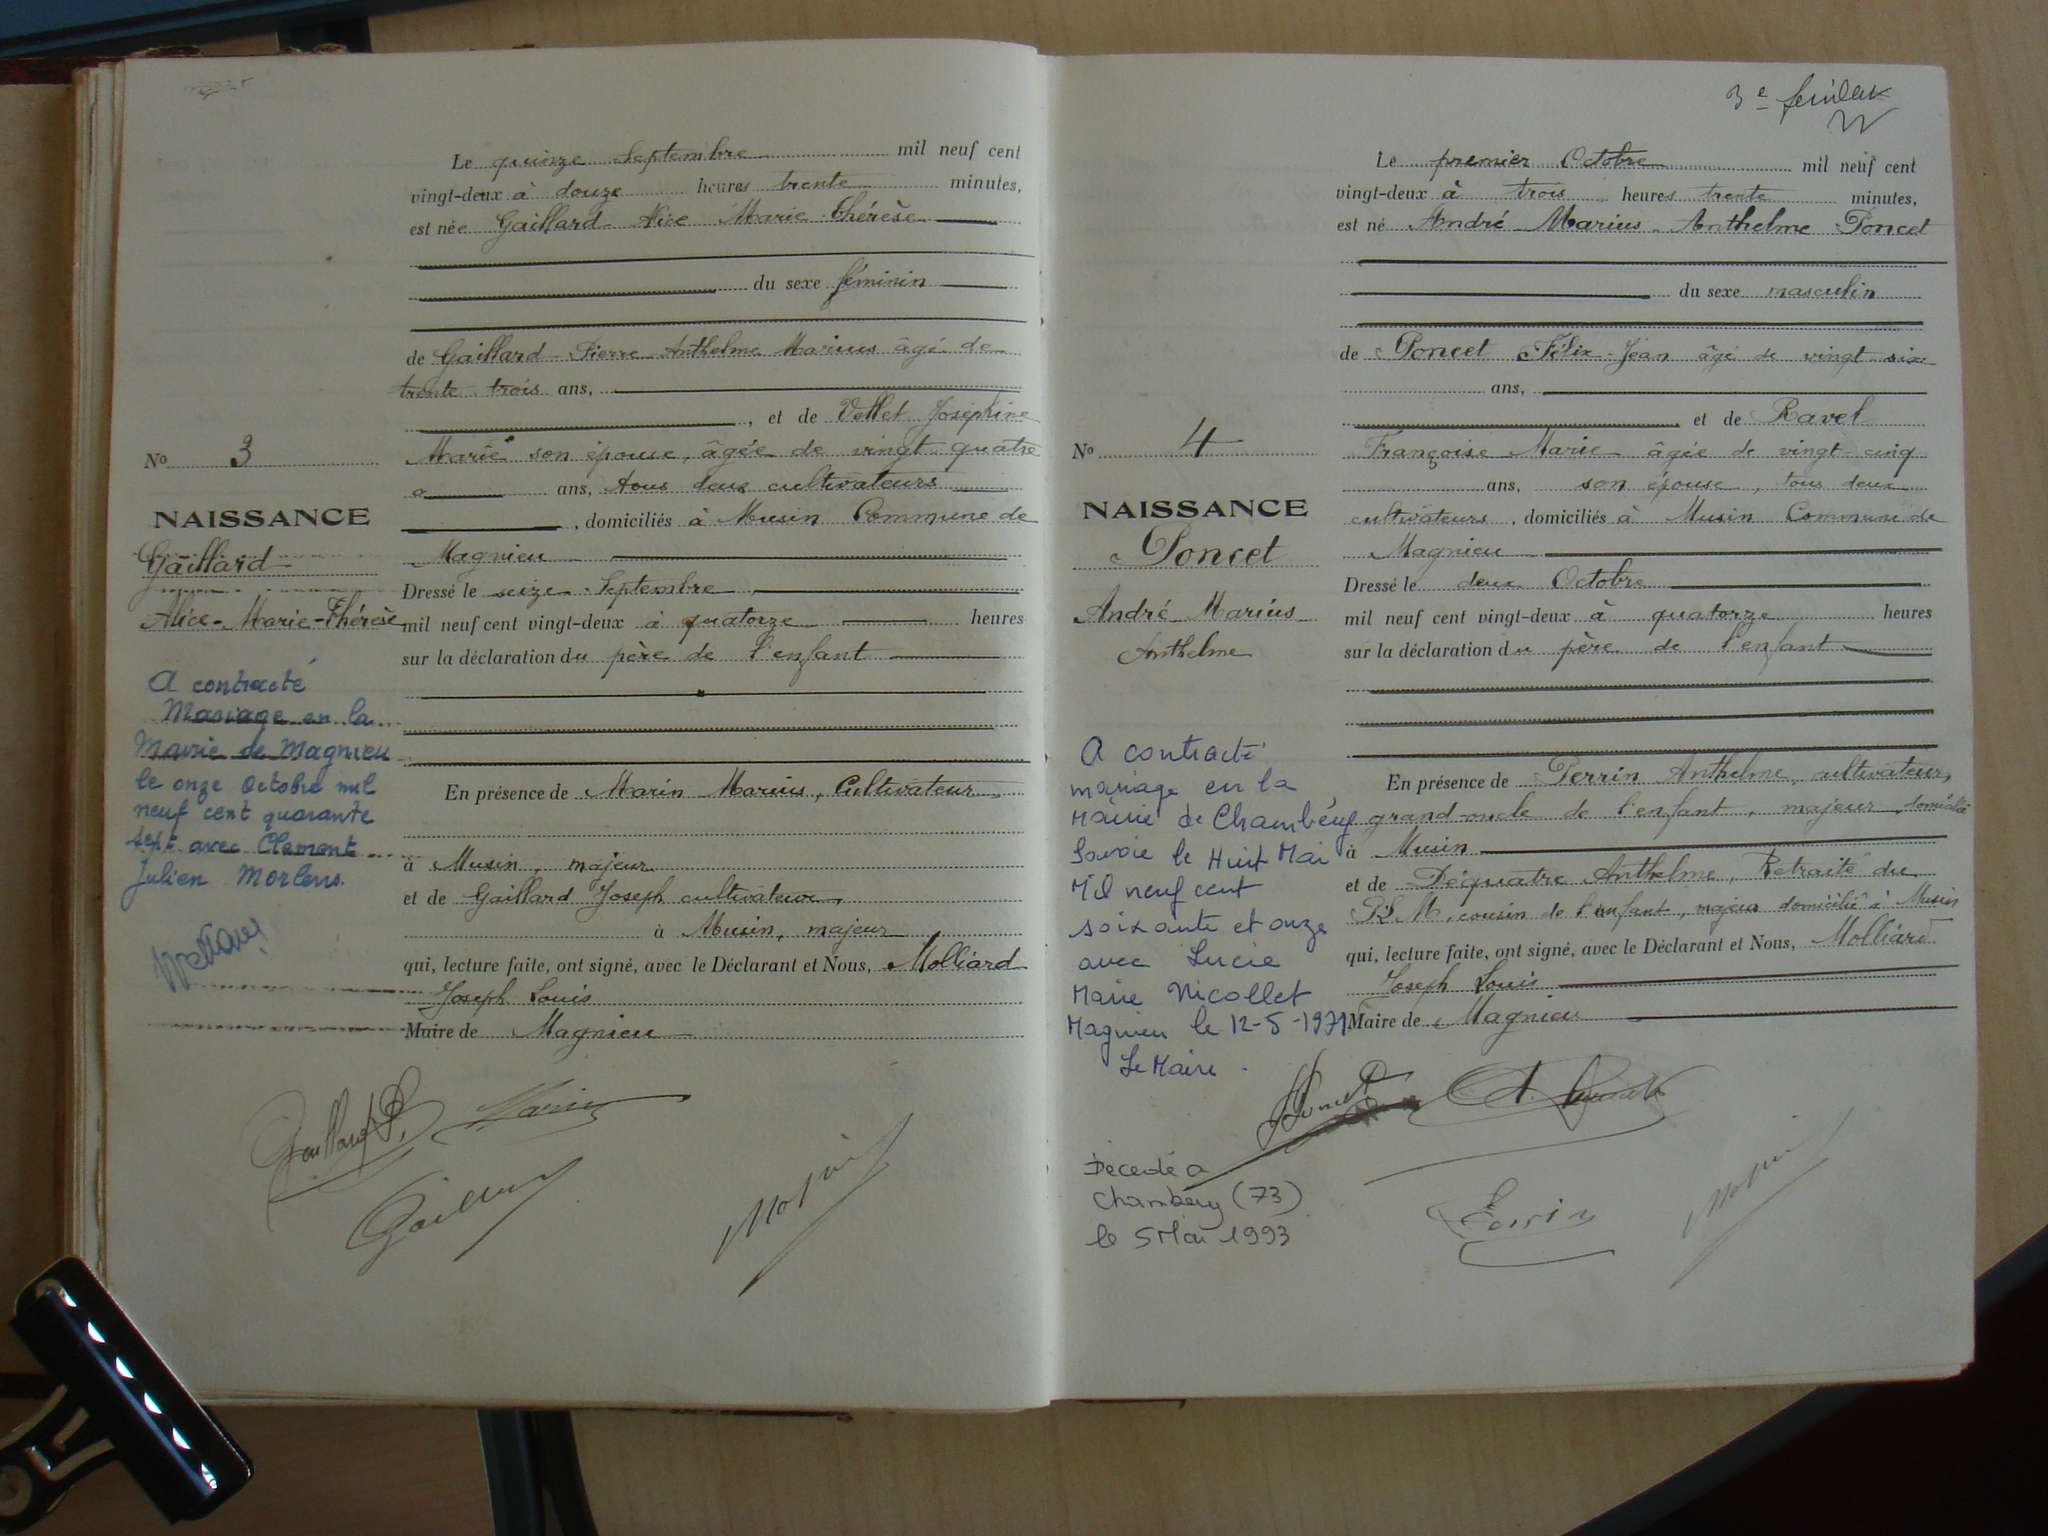 Le quinze Septembre mil neuf cent
vingt-deux à douze heures trente minutes,
est née Gaillard Alice Marie Thérèse
du sexe féminin
de Gaillard Pierre Anthelme Marius âgé de
trente trois ans,
, et de Vellet Joséphine
Marie son épouse, âgée de vingt quatre
ans, tous deux cultivateurs
, domiciliés à Musin Commune de
Magnieu
Dressé le seize Septembre
mil neuf cent vingt-deux à quatorze heures
sur la déclaration du père de l'enfant
En présence de Marin Marius, Cultivateur
à Musin, majeur
et de Gaillard Joseph cultivateur,
à Musin, majeur
qui, lecture faite, ont signé, avec le Déclarant et Nous, Molliard
Joseph Louis
Maire de Magnieu
No 3
NAISSANCE
Gaillard
Alice-Marie-Thérèse
A contracté
Mariage en la
Mairie de Magnieu
le onze Octobre mil
neuf cent quarante
sept avec Clement
Julien Morlens.
Gaillard P. Marin
3e feuillet
Le premier Octobre mil neuf cent
vingt-deux à trois heures trente minutes,
est né André Marius Anthelme Poncet
du sexe masculin
de Poncet Félix Jean âgé de vingt six
ans,
et de Ravel
Françoise Marie âgée de vingt cinq
ans, son épouse, tous deux
cultivateurs, domiciliés à Musin Commune de
Magnieu
Dressé le deux Octobre
mil neuf cent vingt-deux à quatorze heures
sur la déclaration du père de l'enfant
En présence de Perrin Anthelme, cultivateur,
grand-oncle de l'enfant, majeur, domicilié
à Musin
et de Déquatre Anthelme, Retraité du
P.L.M, cousin de l'enfant, majeur domicilié à Musin
qui, lecture faite, ont signé, avec le Déclarant et Nous, Molliard
Joseph Louis
Maire de Magnieu
No 4
NAISSANCE
Poncet
André Marius
Anthelme
A contracté
mariage en la
Mairie de Chambéry
Savoie le Huit Mai
Mil neuf cent
soixante et onze
avec Lucie
Marie Nicollet
Magnieu le 12-5-1971
Le Maire
Poncet
Perrin
Décédé a
Chambery (73)
le 5 Mai 1993